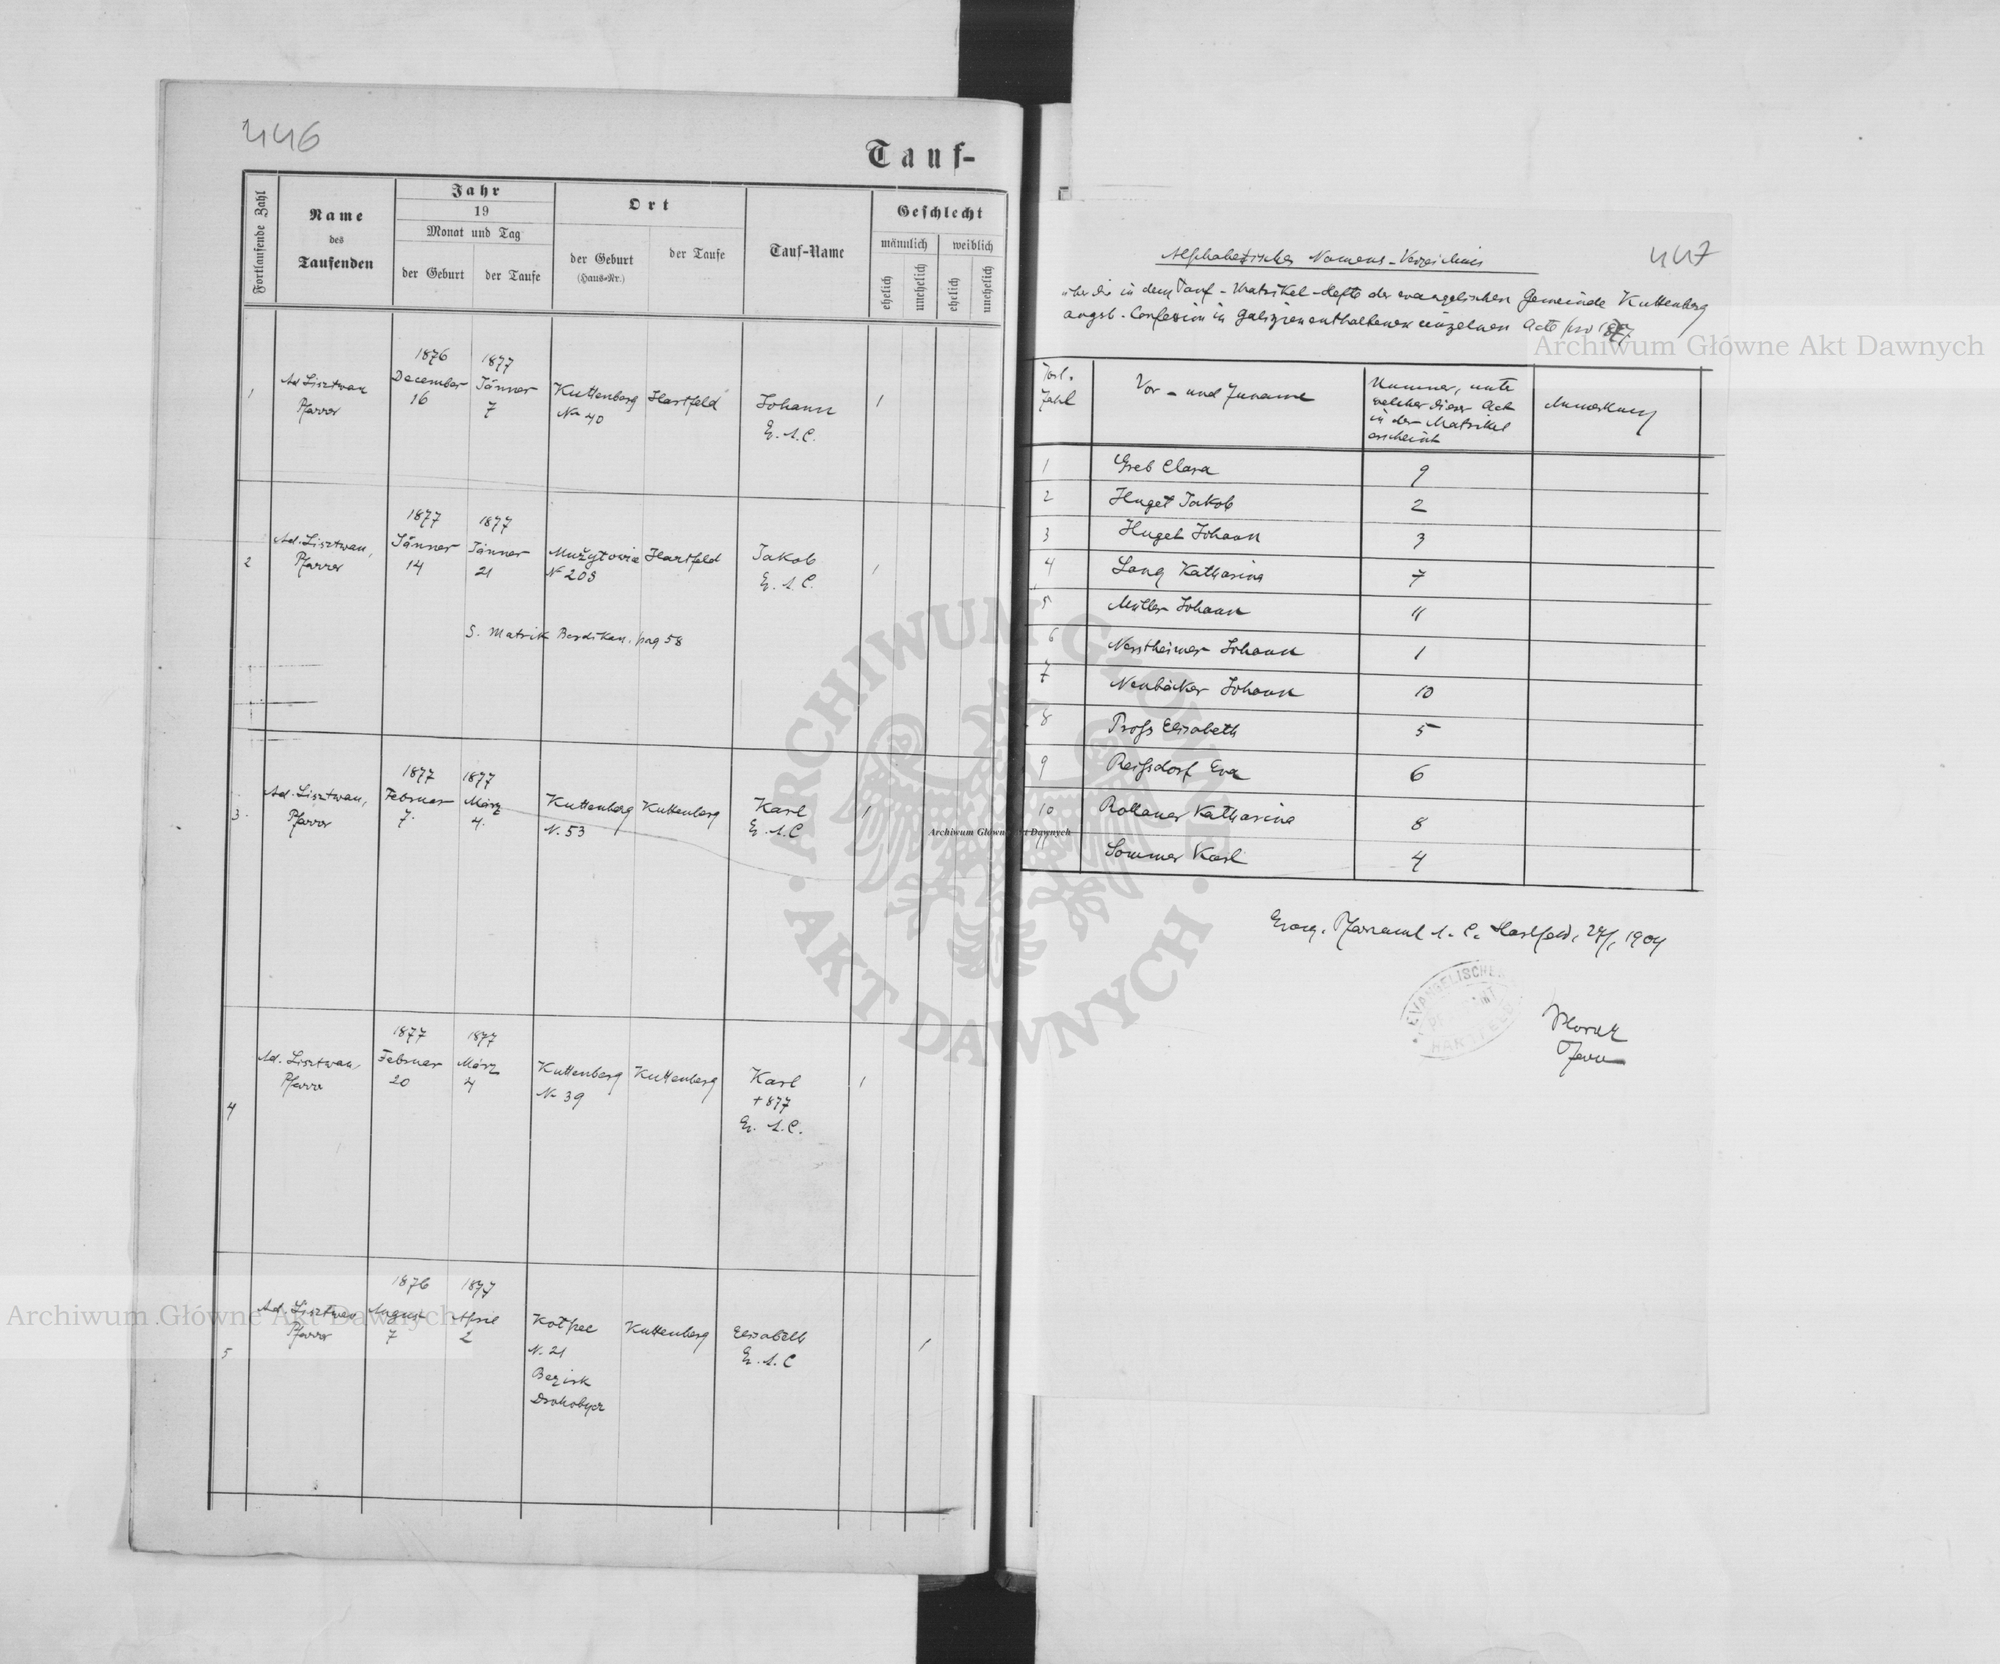 446
Tauf-
Fortlaufende Zahl
Name
des
Taufenden
Jahr
19
Monat und Tag
der Geburt
der Taufe
Ort
der Geburt
(Haus-Nr.)
der Taufe
Tauf-Name
Geschlecht
männlich
weiblich
ehelich
unehelich
ehelich
unehelich
1
Ad Lisztwan
Pfarrer
1876
December
16
1877
Jänner
7
Kuttenberg
No 40
Hartfeld
Johann
Ev. A. C.
1
2
Ad. Lisztwan,
Pfarrer
1877
Jänner
14
1877
Jänner
21
Mużyłowice
N 208
Hartfeld
Jakob
Ev. A. C.
1
S. Matrik Berdikau. pag 58
3
Ad. Lisztwan,
Pfarrer
1877
Februar
7.
1877
März
4.
Kuttenberg
N. 53
Kuttenberg
Karl
Ev. A. C
1
4
Ad. Lisztwan,
Pfarrer
1877
Februar
20
1877
März
4
Kuttenberg
No 39
Kuttenberg
Karl
+ 877
Ev. A. C.
1
5
Ad. Lisztwan
Pfarrer
1876
August
7
1877
April
2
N. 21
Bezirk
Drohobycz
Kuttenberg
Elisabeth
Ev. A. C
1
447
Alphabetisches Namens-Verzeichnis
über die in dem Tauf-Matrikel-Hefte der evangelischen Gemeinde Kuttenberg
augsb. Confession in Galizien enthaltenen einzelnen Acte pro 1877
Fortl.
Zahl
Vor- und Zuname
Nummer, unter
welcher dieser Act
in der Matrikel
erscheint
Anmerkung
1 Greb Clara 9
2 Huget Jakob 2
3 Huget Johann 3
4 Lang Katharina 7
5 Müller Johann 11
6 Nesstheimer Johann 1
7 Neubäcker Johann 10
8 Pross Elisabeth 5
9 Reissdorf Eva 6
10 Rollauer Katharina 8
11 Sommer Karl 4
Evang. Pfarramt A. C. Hartfeld, 1904
EVANGELISCHES
HARTFELD
Pfarrer
Archiwum Główne Akt Dawnych
Archiwum Główne Akt Dawnych
Archiwum Główne Akt Dawnych
ARCHIWUM GŁÓWNE
AKT DAWNYCH